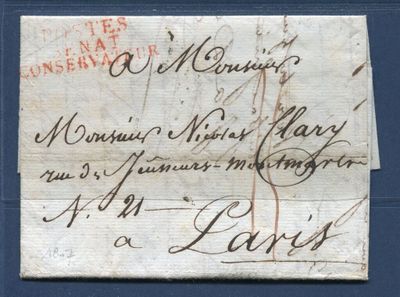 POSTES
SENAT
CONSERVATEUR
a Monsieur
Monsieur Nicolas Clary
rue des Jeuneurs-montmartre
N. 21
a Paris
1807